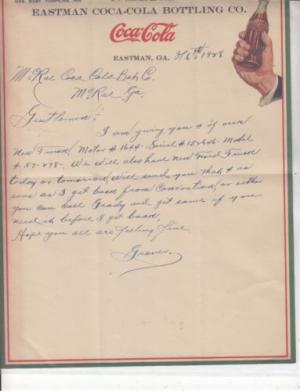 EASTMAN COCA-COLA BOTTLING CO.
Coca-Cola
EASTMAN, GA.
McRae Coca Cola Bot. Co.
McRae Ga.
Gentlemen:
I am giving you # of our
new Truck, Motor # Serial # Model
We will also have new Ford Truck
today or tomorrow, will send you that # as
soon as I get back from Convention, or either
you can call Grady and get same if you
need it before I get back.
Hope you all are feeling fine.